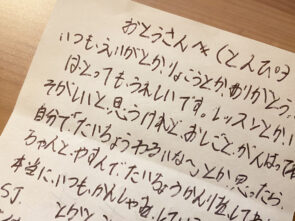 おとうさんへ (とんぴ
いつも、えいがとか、りょうとか、ありがとう
ほとっても、うれしいです。レッスンとか、い
そがしいと、思うけれど、おしごと、がんばって
自分で、たいちょうわるいな〜とか思ったら、
ちゃんと、やすんで、たいちょうかんり
本当に、いつも、かんしゃ
SJ